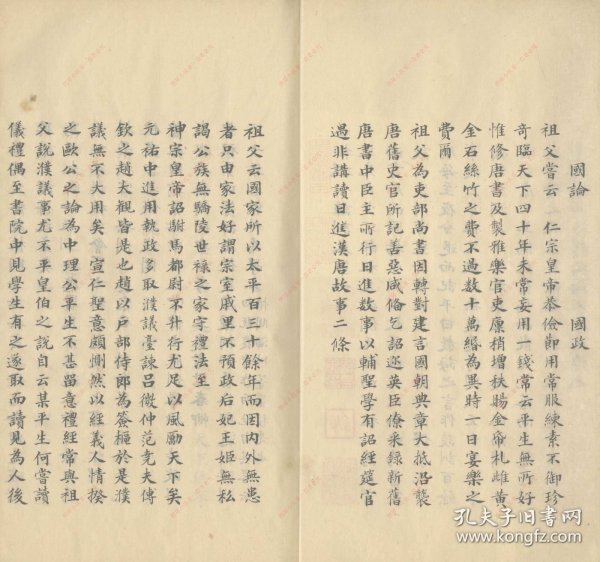 國論　國政
祖父嘗云之仁宗皇帝恭儉節用常服練素不御珍
奇臨天下四十年未常妄用一錢常云平生無所好
惟修唐書及製雅樂官吏廩稍增扶賜金帝札雌黃
金石絲竹之費不過數十萬緡為異時一日宴樂之
費爾
祖父為吏部尚書因轉對建言國朝典章大抵沿襲
唐舊史官所記善惡咸備乞詔逐英臣僚采錄新舊
唐書中臣主所行日進數事以輔聖學有詔經筵官
遇非講讀日進漢唐故事二條
祖父云國家所以太平百三十餘年而因內外無患
者只由家法好謂宗室戚里不預政后妃王姬無私
謁公族無驕陵世祿之家守禮法至
神宗皇帝詔駙馬都尉不升行尤足以風勵天下矣
元祐中進用執政多取濮議臺諫呂微仲范堯夫傅
欽之趙大觀皆是也趙以戶部侍郎為簽樞於是濮
議無不大用矣宣仁聖意頗惻然以經義人情揆
之歐公之論為中理公平生不甚留意禮經常與祖
父說濮議事尤不平皇伯之說自云某平生何嘗讀
儀禮偶至書院中見學生有之遂取而讀見為人後
孔夫子旧书网
www.kongfz.com